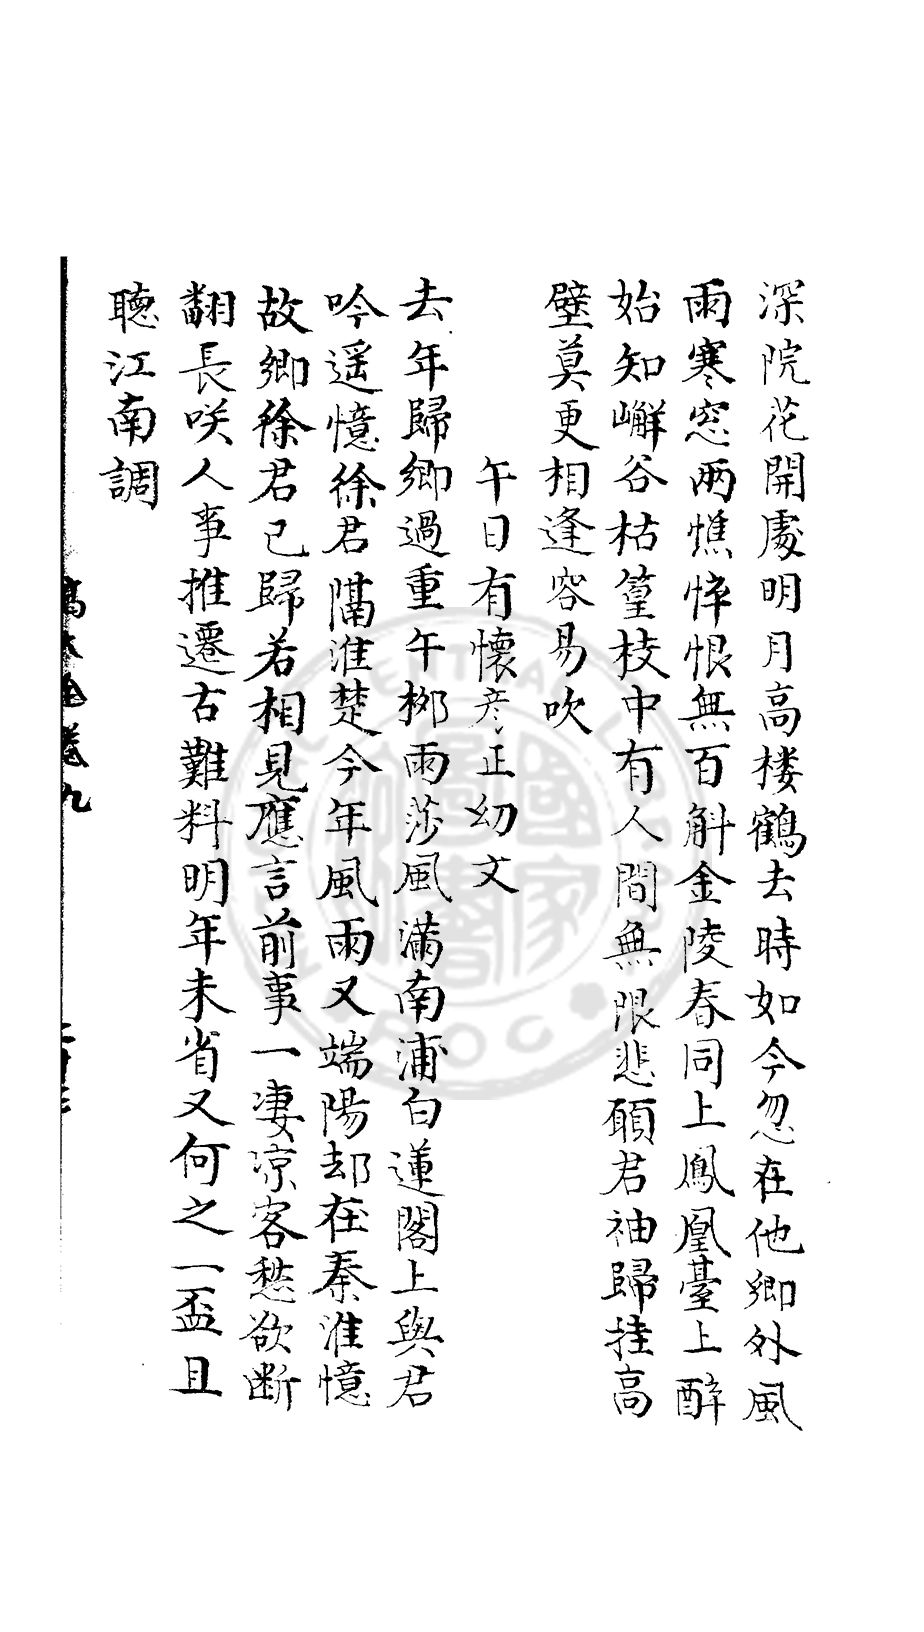 深院花開處明月高楼鶴去時如今忽在他鄉外風
雨寒窓两憔悴恨無百斛金陵春同上鳳凰臺上醉
始知嶰谷枯篁枝中有人間無限悲願君袖歸挂高
壁莫更相逢容易吹
午日有懷彦正幼文
去年歸鄉過重午桞雨莎風满南浦白蓮閣上與君
吟遥憶徐君隔淮楚今年風雨又端陽却在秦淮憶
故鄉徐君已歸若相見應言前事一凄凉客愁欲断
翻長咲人事推遷古難料明年未省又何之一盃且
聽江南調